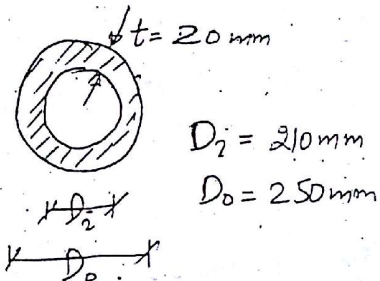 t = 20 mm
Di = 210mm
Do = 250mm
Di
Do